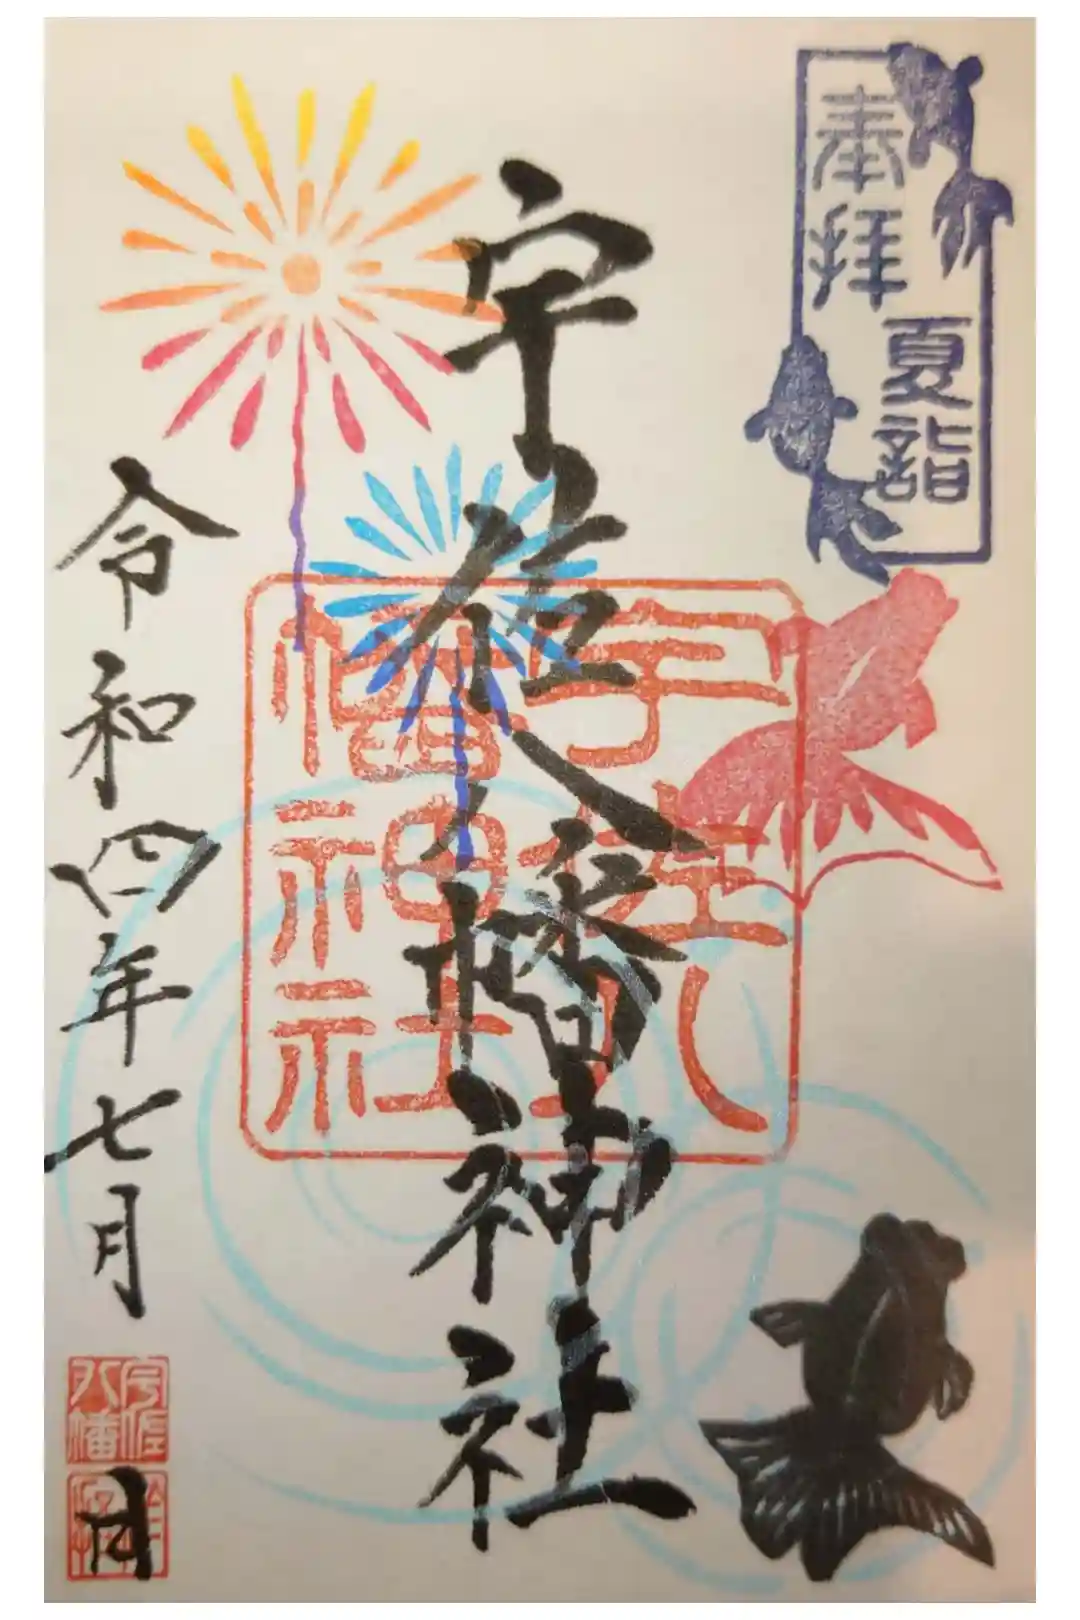 奉拝
夏詣
宇佐八幡神社
宇佐八
幡神社
令和四年七月
宇佐
八幡